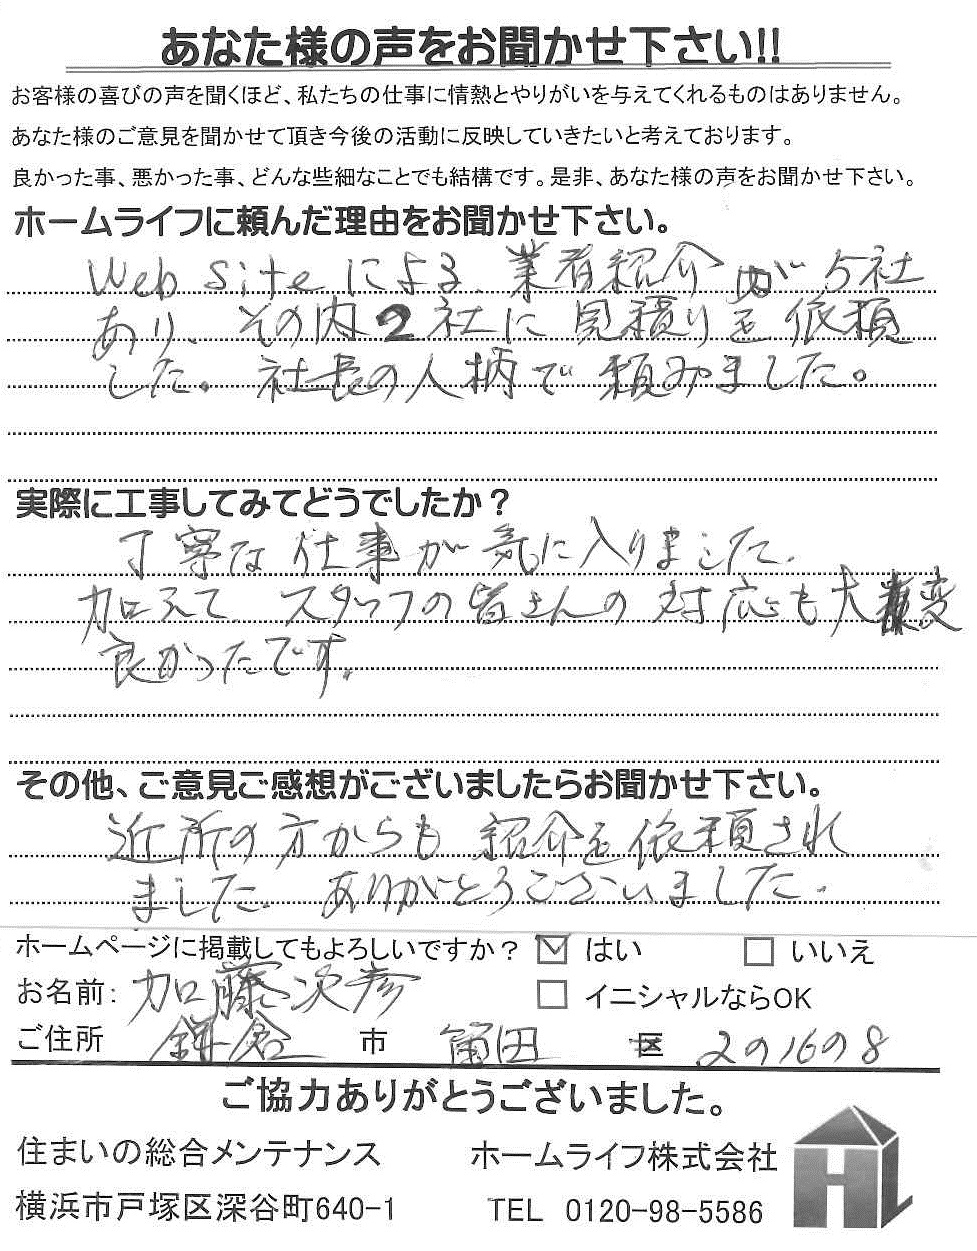 あなた様の声をお聞かせ下さい!!
お客様の喜びの声を聞くほど、私たちの仕事に情熱とやりがいを与えてくれるものはありません。
あなた様のご意見を聞かせて頂き今後の活動に反映していきたいと考えております。
良かった事、悪かった事、どんな些細なことでも結構です。是非、あなた様の声をお聞かせ下さい。
ホームライフに頼んだ理由をお聞かせ下さい。
Web Siteによる業者紹介が5社
あり、その内2社に見積りを依頼
した。社長の人柄で頼みました。
実際に工事してみてどうでしたか？
丁寧な仕事が気に入りました。
加えて スタッフの皆さんの対応も大変
良かったです。
その他、ご意見ご感想がございましたらお聞かせ下さい。
近所の方からも紹介を依頼され
ました。ありがとうございました。
ホームページに掲載してもよろしいですか？ はい いいえ
お名前: 加藤次彦 イニシャルならOK
ご住所 鎌倉 市 笛田 区 2の16の8
ご協力ありがとうございました。
住まいの総合メンテナンス ホームライフ株式会社
横浜市戸塚区深谷町640-1 TEL 0120-98-5586
HL